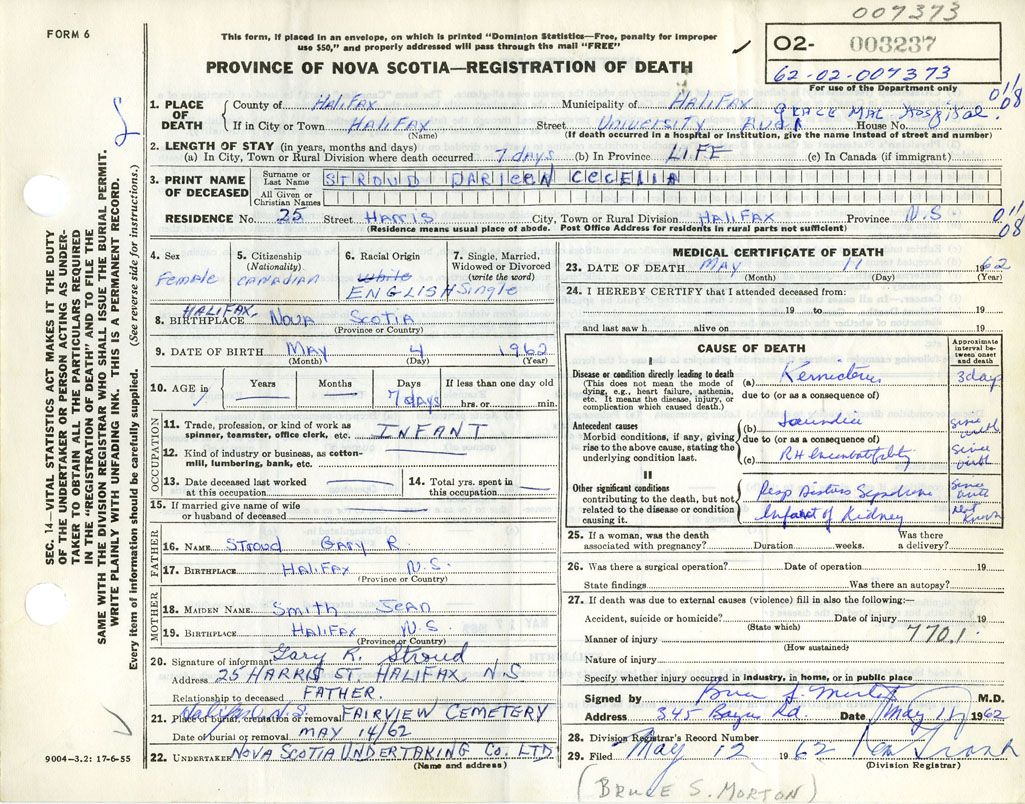 007373
FORM 6
This form, if placed in an envelope, on which is printed "Dominion Statistics—Free, penalty for improper
use $50," and properly addressed will pass through the mail "FREE"
02- 003237
62-02-007373
For use of the Department only
PROVINCE OF NOVA SCOTIA—REGISTRATION OF DEATH
1. PLACE OF DEATH County of HALIFAX Municipality of HALIFAX 011/08
GRACE MAT HOSPITAL.
If in City or Town HALIFAX Street UNIVERSITY AVE House No.
(Name) (If death occurred in a hospital or Institution, give the name instead of street and number)
2. LENGTH OF STAY (in years, months and days)
(a) In City, Town or Rural Division where death occurred 7 days (b) In Province LIFE (c) In Canada (if immigrant)
3. PRINT NAME OF DECEASED Surname or Last Name STROUD DARLEEN CECELIA
All Given or Christian Names
RESIDENCE No. 25 Street HARRIS City, Town or Rural Division HALIFAX Province N.S 011/08
(Residence means usual place of abode. Post Office Address for residents in rural parts not sufficient)
4. Sex Female
5. Citizenship (Nationality) CANADIAN
6. Racial Origin White ENGLISH
7. Single, Married, Widowed or Divorced (write the word) Single
8. BIRTHPLACE HALIFAX, NOVA SCOTIA
(Province or Country)
9. DATE OF BIRTH MAY 4 1962
(Month) (Day) (Year)
10. AGE in Years Months Days 7 days If less than one day old hrs. or min.
OCCUPATION
11. Trade, profession, or kind of work as spinner, teamster, office clerk, etc. INFANT
12. Kind of industry or business, as cotton-mill, lumbering, bank, etc.
13. Date deceased last worked at this occupation
14. Total yrs. spent in this occupation
15. If married give name of wife or husband of deceased
FATHER
16. NAME STROUD GARY R.
17. BIRTHPLACE HALIFAX N.S.
(Province or Country)
MOTHER
18. MAIDEN NAME Smith JEAN
19. BIRTHPLACE HALIFAX N.S.
(Province or Country)
20. Signature of informant Gary R. Stroud
Address 25 HARRIS ST. HALIFAX, N.S
Relationship to deceased FATHER.
21. Place of burial, cremation or removal Halifax N.S. FAIRVIEW CEMETERY
Date of burial or removal MAY 14/62
22. UNDERTAKER NOVA SCOTIA UNDERTAKING CO. LTD
(Name and address)
MEDICAL CERTIFICATE OF DEATH
23. DATE OF DEATH MAY 11 1962
(Month) (Day) (Year)
24. I HEREBY CERTIFY that I attended deceased from:
19 to 19
and last saw h alive on 19
CAUSE OF DEATH
Approximate interval between onset and death
I
Disease or condition directly leading to death
(This does not mean the mode of dying, e.g., heart failure, asthenia, etc. It means the disease, injury, or complication which caused death.)
(a) Kernicterus 3 days
due to (or as a consequence of)
Antecedent causes
Morbid conditions, if any, giving rise to the above cause, stating the underlying condition last.
(b) Jaundice since birth
due to (or as a consequence of)
(c) RH Incompatability since birth
II
Other significant conditions
contributing to the death, but not related to the disease or condition causing it.
Resp Distress Syndrome since birth
Infarct of Kidney not known
25. If a woman, was the death associated with pregnancy? Duration weeks. Was there a delivery?
26. Was there a surgical operation? Date of operation 19
State findings Was there an autopsy?
27. If death was due to external causes (violence) fill in also the following:—
Accident, suicide or homicide? Date of injury 19
(State which)
Manner of injury 770.1
(How sustained)
Nature of injury
Specify whether injury occurred in industry, in home, or in public place
Signed by M.D.
Address 345 Rd. Date May 11 1962
28. Division Registrar's Record Number
29. Filed May 12 1962
(Division Registrar)
(BRUCE S. MORTON)
SEC. 14—VITAL STATISTICS ACT MAKES IT THE DUTY
OF THE UNDERTAKER OR PERSON ACTING AS UNDER-
TAKER TO OBTAIN ALL THE PARTICULARS REQUIRED
IN THE "REGISTRATION OF DEATH" AND TO FILE THE
SAME WITH THE DIVISION REGISTRAR WHO SHALL ISSUE THE BURIAL PERMIT.
WRITE PLAINLY WITH UNFADING INK. THIS IS A PERMANENT RECORD.
Every item of information should be carefully supplied. (See reverse side for instructions.)
9004—3.2: 17-6-55